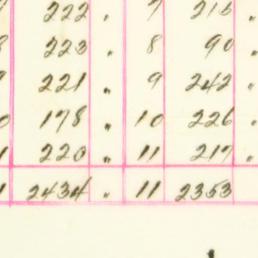 222 " 7 216 "
8 223 " 8 90 "
9 221 " 9 242 "
0 178 " 10 226 "
1 220 " 11 217 "
1 2434 " 11 2353